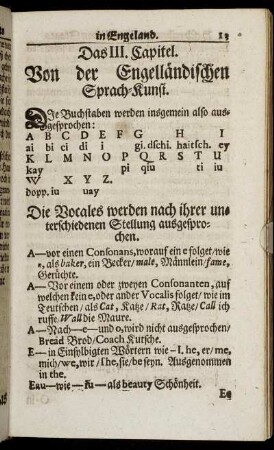 in Engeland. 13
Das III. Capitel.
Von der Engelländischen
Sprach-Kunst.
DIe Buchstaben werden insgemein also aus-
gesprochen:
A B C D E F G H I
ai bi ci di i gi. dschi. haitsch. ey
K L M N O P Q R S T U
kay pi qiu ti iu
W X Y Z.
dopp. iu uay
Die Vocales werden nach ihrer un-
terschiedenen Stellung ausgespro-
chen.
A—vor einen Consonans, worauf ein e folget/wie
e, als baker, ein Becker/male, Männlein/fame,
Gerüchte.
A—Vor einem oder zweyen Consonanten, auf
welchen kein e, oder ander Vocalis folget/wie im
Teutschen/als Cat, Katze/Rat, Ratze/Call ich
ruffe. Wall die Maure.
A—Nach—e—und o, wird nicht ausgesprochen/
Bread Brod/Coach Kutsche.
E—in Einsylbigten Wörtern wie—I. he, er/me,
mich/we, wir/she, sie/be seyn. Ausgenommen
in the.
Eau—wie—iu—als beauty Schönheit.
Ee